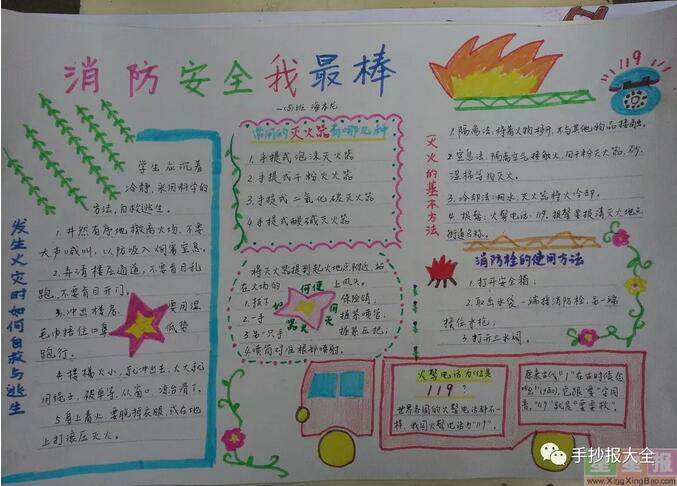 消防安全我最棒
一(5)班
119
发生火灾时如何自救与逃生
学生应沉着
冷静,采用科学的
方法,自救逃生。
1.井然有序地撤离火场,不要
大声喊叫,以防吸入烟雾窒息。
2.弄清楼层通道,不要盲目乱
跑,不要盲目开门。
3.冲出楼房,要用湿
毛巾捂住口鼻,低势
跑行。
5.身上着火,要脱掉衣服,或在地
上打滚压灭火。
常用的灭火器有哪几种
1.手提式泡沫灭火器
2.手提式干粉灭火器
3.手提式二氧化碳灭火器
4.手提式酸碱灭火器
将灭火器提到起火地点附近,站
在火场的上风头。
如何使用灭火器
1.拔下保险销;
2.一手握紧喷管;
3.另一只手握紧压把;
4.喷筒对准根部喷射。
灭火的基本方法
1.隔离法:将着火物移开,不与其他物品接触。
2.窒息法:隔离空气接触火,用干粉灭火器,砂,
湿棉等物灭火。
3.冷却法:用水、灭火器将火冷却。
4.报警:火警电话:119,报警要报清灭火地点
街道名称。
消防栓的使用方法
1.打开安全箱;
2.取出水袋一端接消防栓,另一端
接住水枪;
3.打开上水阀。
火警电话为什么是
119?
世界各国的火警电话都不一
样,我国火警电话为"119"。
原来古代"1"在古时候念
"幺"(yāo),它跟"要"字同
音,"119"就是"要要救"。
手抄报大全
星星报
www.XingXingBao.com